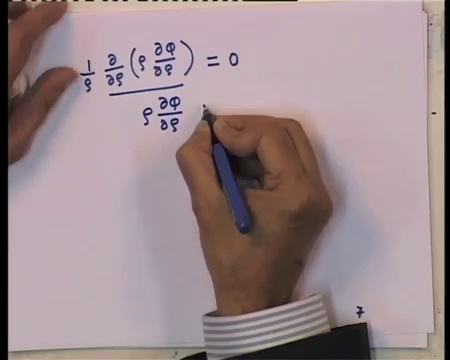 1/ρ ∂/∂ρ (ρ ∂Φ/∂ρ) = 0
ρ ∂Φ/∂ρ
7